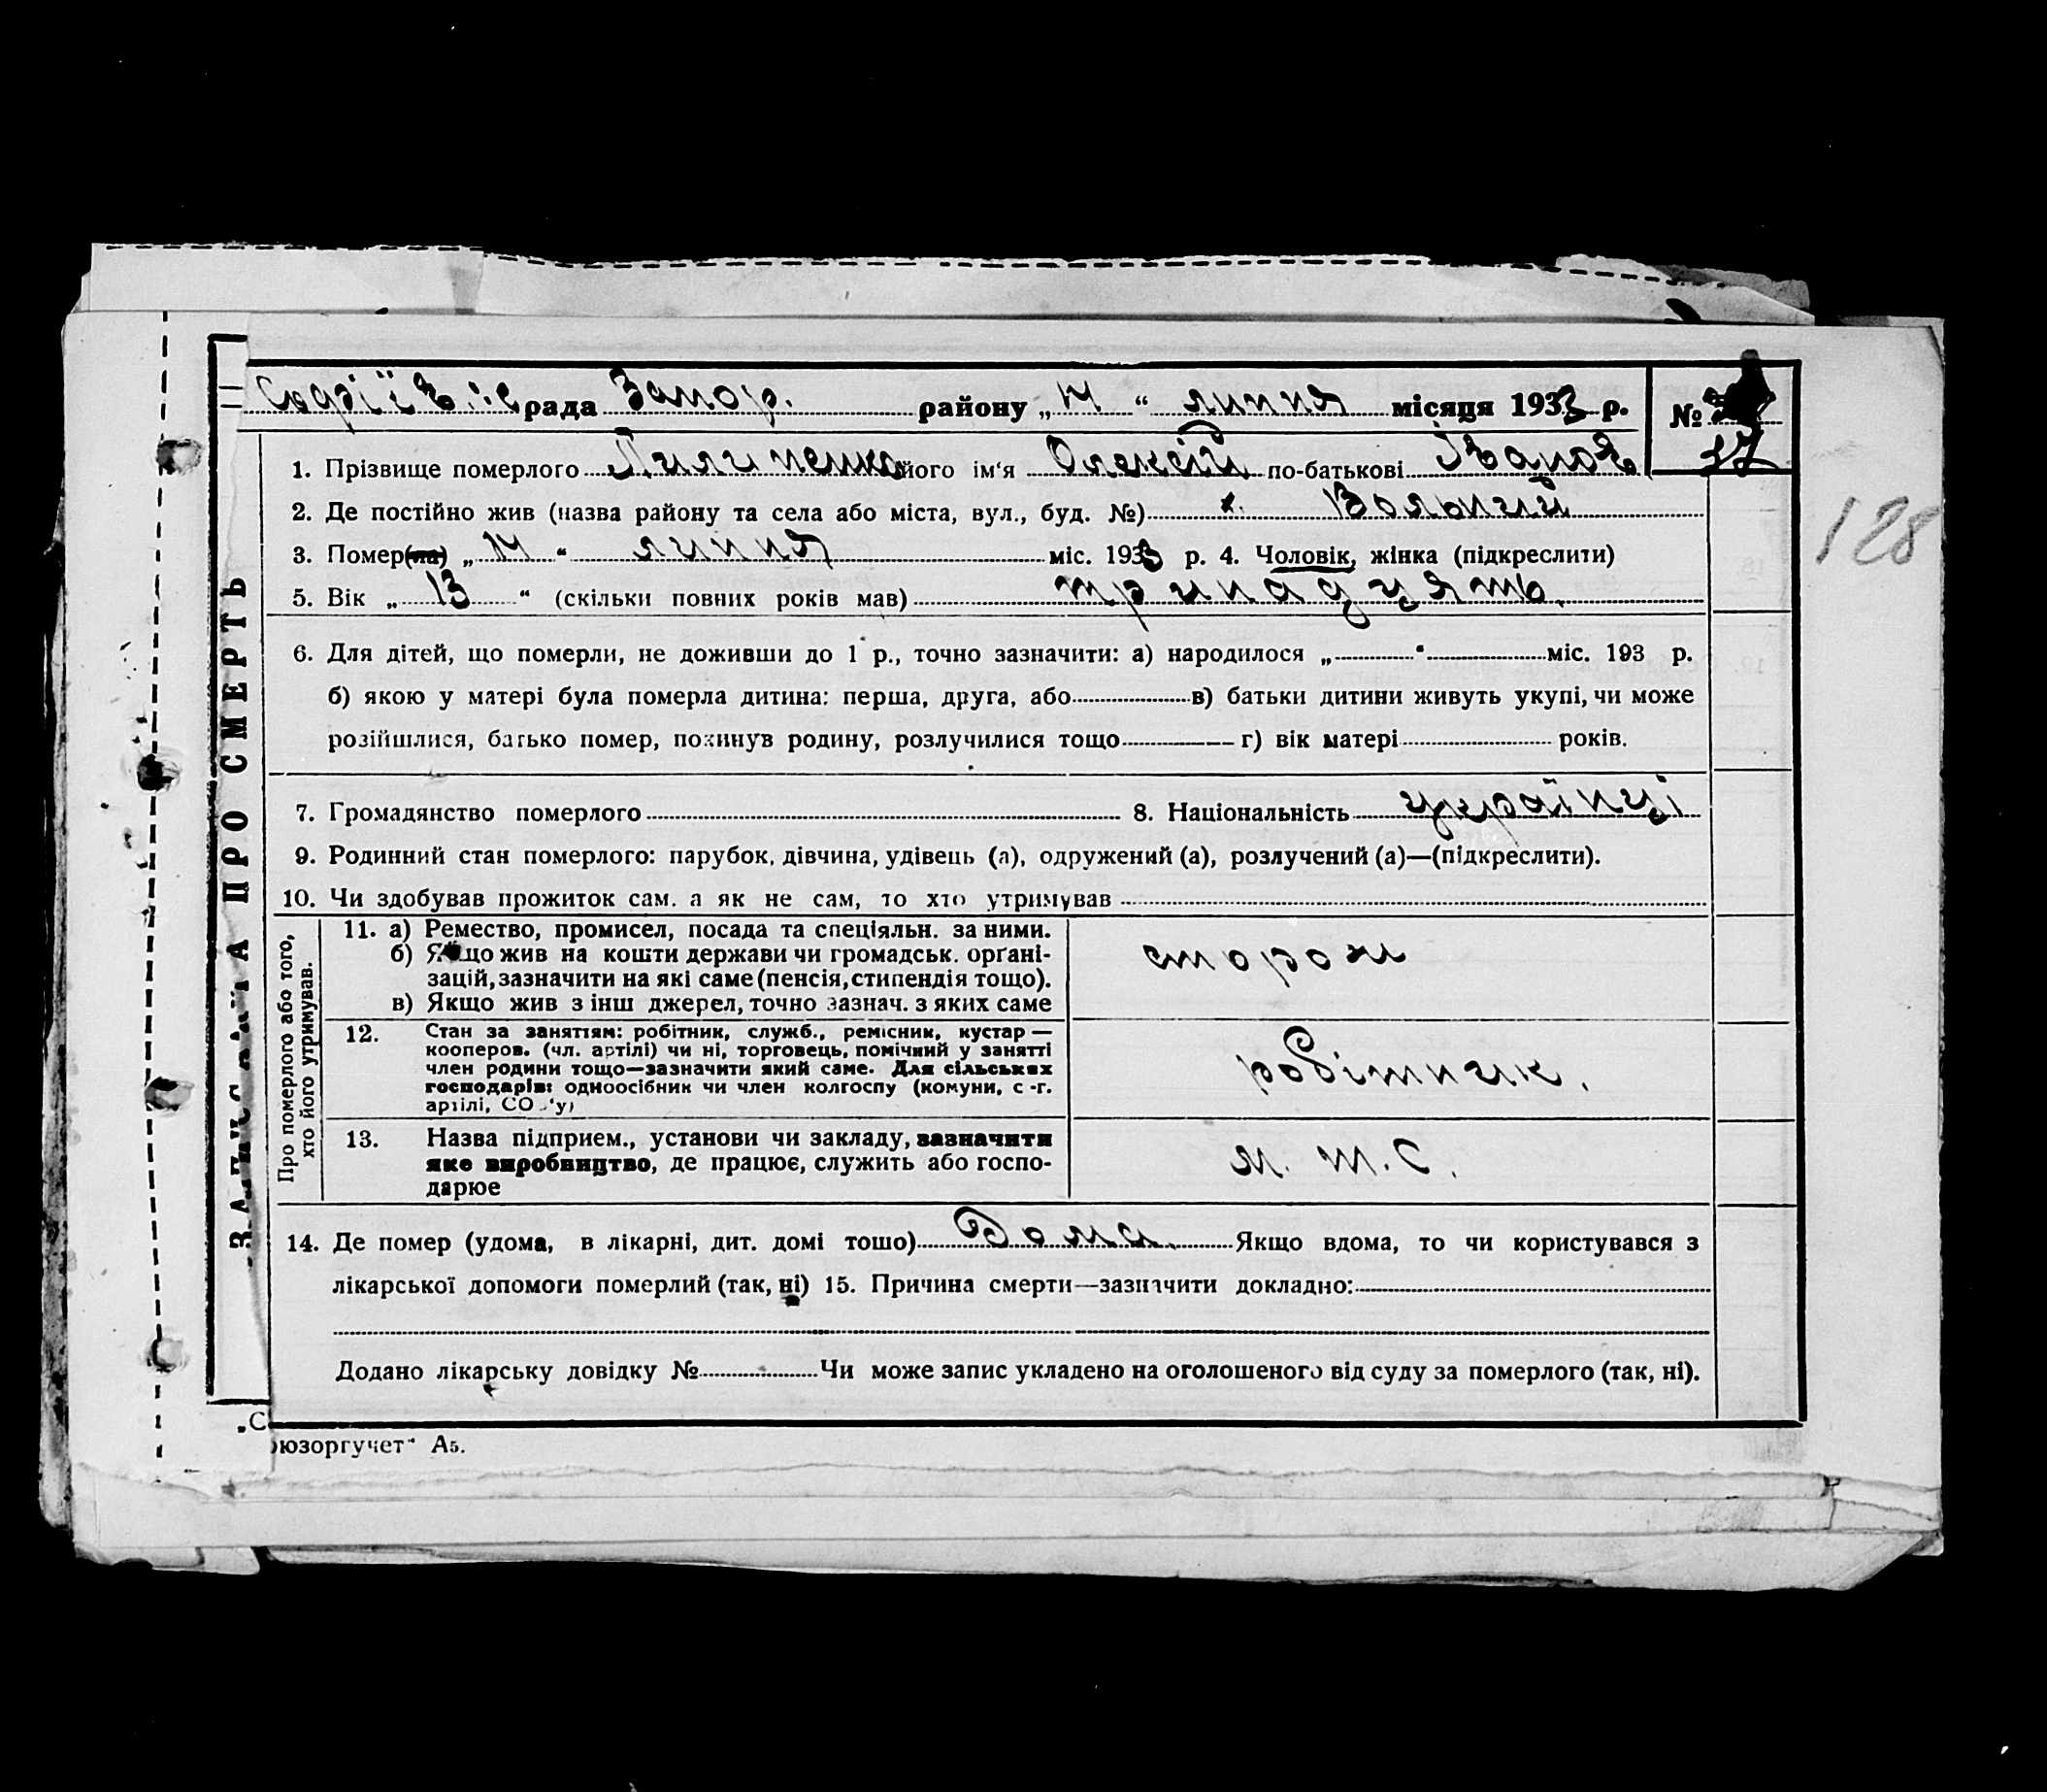 рада Запор. району „14“ липня місяця 1933 р. №
27
1. Прізвище померлого Пилипенко його ім'я Олексій по-батькові Іванов.
2. Де постійно жив (назва району та села або міста, вул., буд. №) х. Вольний
128
3. Помер(ла) „14“ липня міс. 1933 р. 4. Чоловік, жінка (підкреслити)
5. Вік „13“ (скільки повних років мав) тринадцять.
6. Для дітей, що померли, не доживши до 1 р., точно зазначити: а) народилося „ “ міс. 193 р.
б) якою у матері була померла дитина: перша, друга, або в) батьки дитини живуть укупі, чи може
розійшлися, батько помер, покинув родину, розлучилися тощо г) вік матері років.
7. Громадянство померлого 8. Національність українці
9. Родинний стан померлого: парубок, дівчина, удівець (а), одружений (а), розлучений (а)—(підкреслити).
10. Чи здобував прожиток сам, а як не сам, то хто утримував
Про померлого або того,
хто його утримував.
11. а) Ремество, промисел, посада та спеціяльн. за ними.
б) Якщо жив на кошти держави чи громадськ. орґані-
зацій, зазначити на які саме (пенсія, стипендія тощо).
в) Якщо жив з інш джерел, точно зазнач. з яких саме
сторож
12. Стан за заняттям: робітник, служб., ремісник, кустар —
кооперов. (чл. артілі) чи ні, торговець, помічний у занятті
член родини тощо—зазначити який саме. Для сільських
господарів: одноосібник чи член колгоспу (комуни, с-г.
артілі, СО 'у)
робітник.
13. Назва підприєм., установи чи закладу, зазначити
яке виробництво, де працює, служить або госпо-
дарює
М. Т. С.
14. Де помер (удома, в лікарні, дит. домі тощо) Дома. Якщо вдома, то чи користувався з
лікарської допомоги померлий (так, ні) 15. Причина смерти—зазначити докладно:
Додано лікарську довідку № Чи може запис укладено на оголошеного від суду за померлого (так, ні).
„С
юзоргучет“ А5.
ЗАПИСКА ПРО СМЕРТЬ